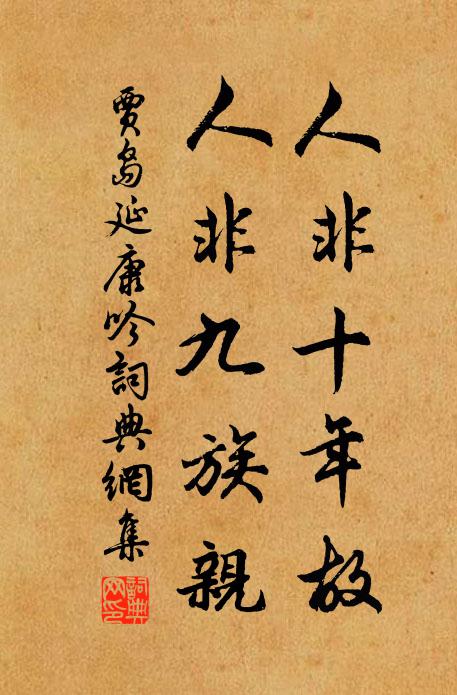 人非十年故
人非九族親
賈島延康吟詞典網集
詞典
網印